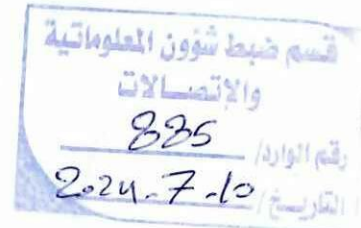 قسم ضبط شؤون المعلوماتية
والإتصالات
رقم الوارد/ 885
التاريخ/ 2024-7-10